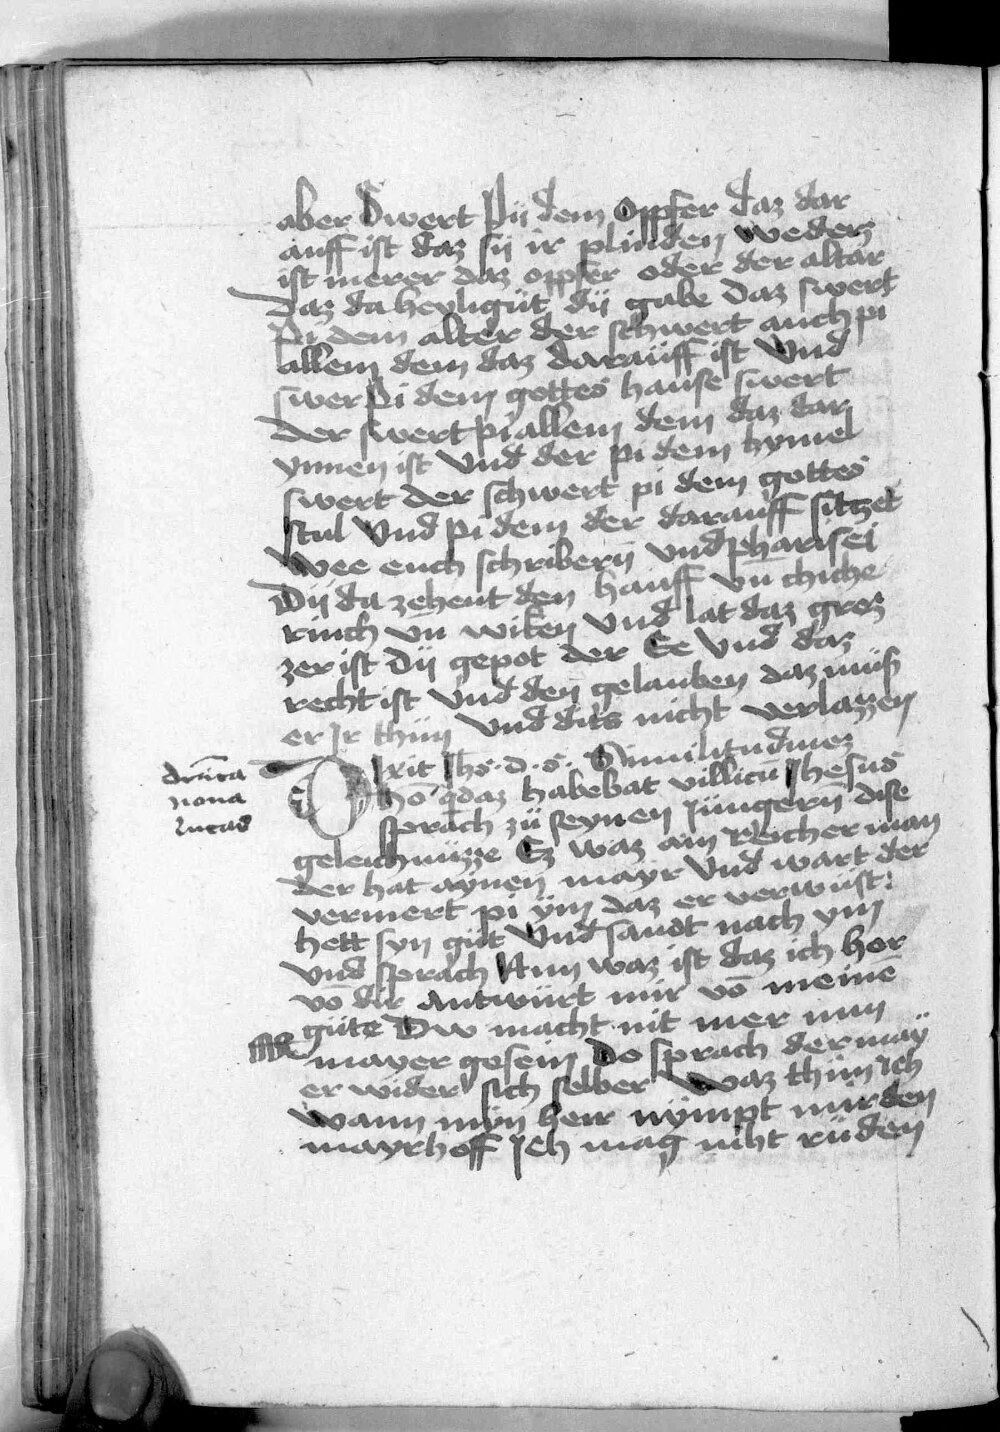 aber Swert Pii dem Opffer daz dar
auff ist daz sij ir plinden weders
ist merer daz opffer oder der altar
Daz da heyligüt dij gabe Daz swert
Pi dem alter der schwert auch pi
allem dem daz darauff ist Und
swer Pi dem gottes hause swert
Der swert pi allem dem daz dar
ynnen ist Und der pi dem hymel
swert der schwert pi dem gottes
stul Und pi dem der darauff sitzet
Wee euch schriberij und pharisei
Dij da zehent den hanff vn̄ chiche
rinch vn̄ wiken Und lat daz groz
zer ist Dij gepot der Ee Und daz
recht ist Und den gelauben daz müß
er Ir thün Und dits nicht verlazzen
Dixit Ihs · d · s · Similitudinez
hō qdaz habebat villicū Jhesus
nona
lucas
sprach zü seynen Jüngern dise
geleichnüzze Ez waz ain Reicher man
der hat aynen mayr Und wart der
vermert pi ym daz er verwüst
hett syn güt Und sandt nach ym
Und sprach Nun waz ist daz ich hor
vō dir Antwürt mir vō meinē
güte Dw macht nit mer min
mayer gesein Do sprach der may
er wider sich selber Waz thün Ich
Wann myn herr nympt mir den
mayrhoff Ich mag niht rüden